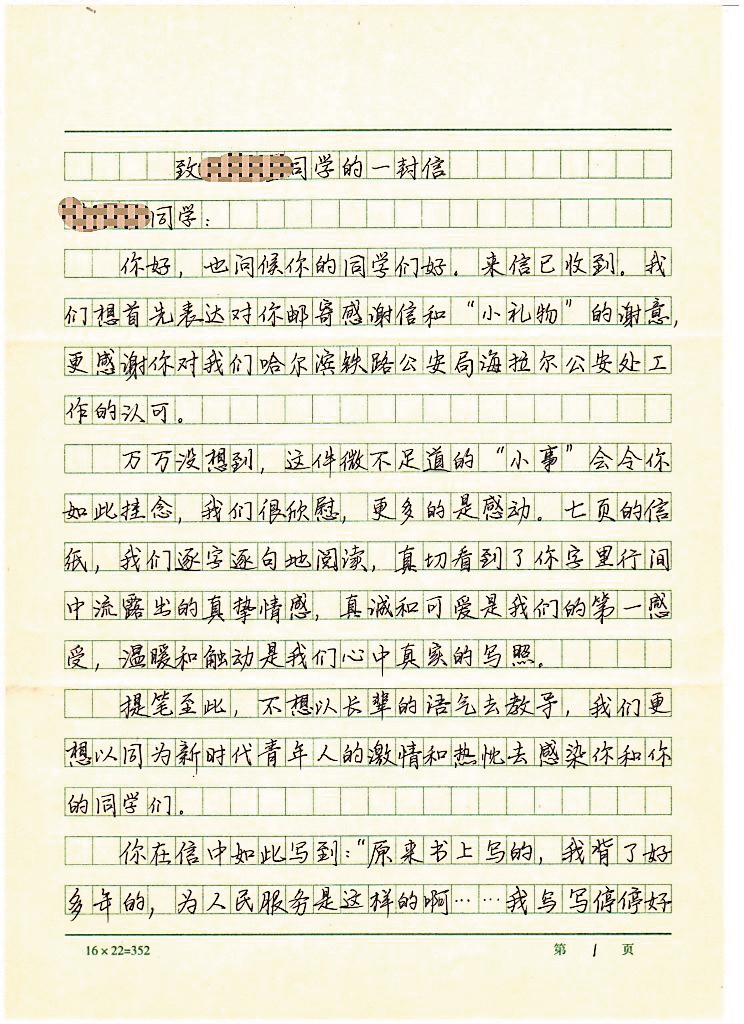 致同学的一封信
同学：
你好，也问候你的同学们好。来信已收到。我
们想首先表达对你邮寄感谢信和“小礼物”的谢意，
更感谢你对我们哈尔滨铁路公安局海拉尔公安处工
作的认可。
万万没想到，这件微不足道的“小事”会令你
如此挂念，我们很欣慰，更多的是感动。七页的信
纸，我们逐字逐句地阅读，真切看到了你字里行间
中流露出的真挚情感，真诚和可爱是我们的第一感
受，温暖和触动是我们心中真实的写照。
提笔至此，不想以长辈的语气去教导，我们更
想以同为新时代青年人的激情和热忱去感染你和你
的同学们。
你在信中如此写到：“原来书上写的，我背了好
多年的，为人民服务是这样的啊……我写写停停好
16×22=352 第 1 页